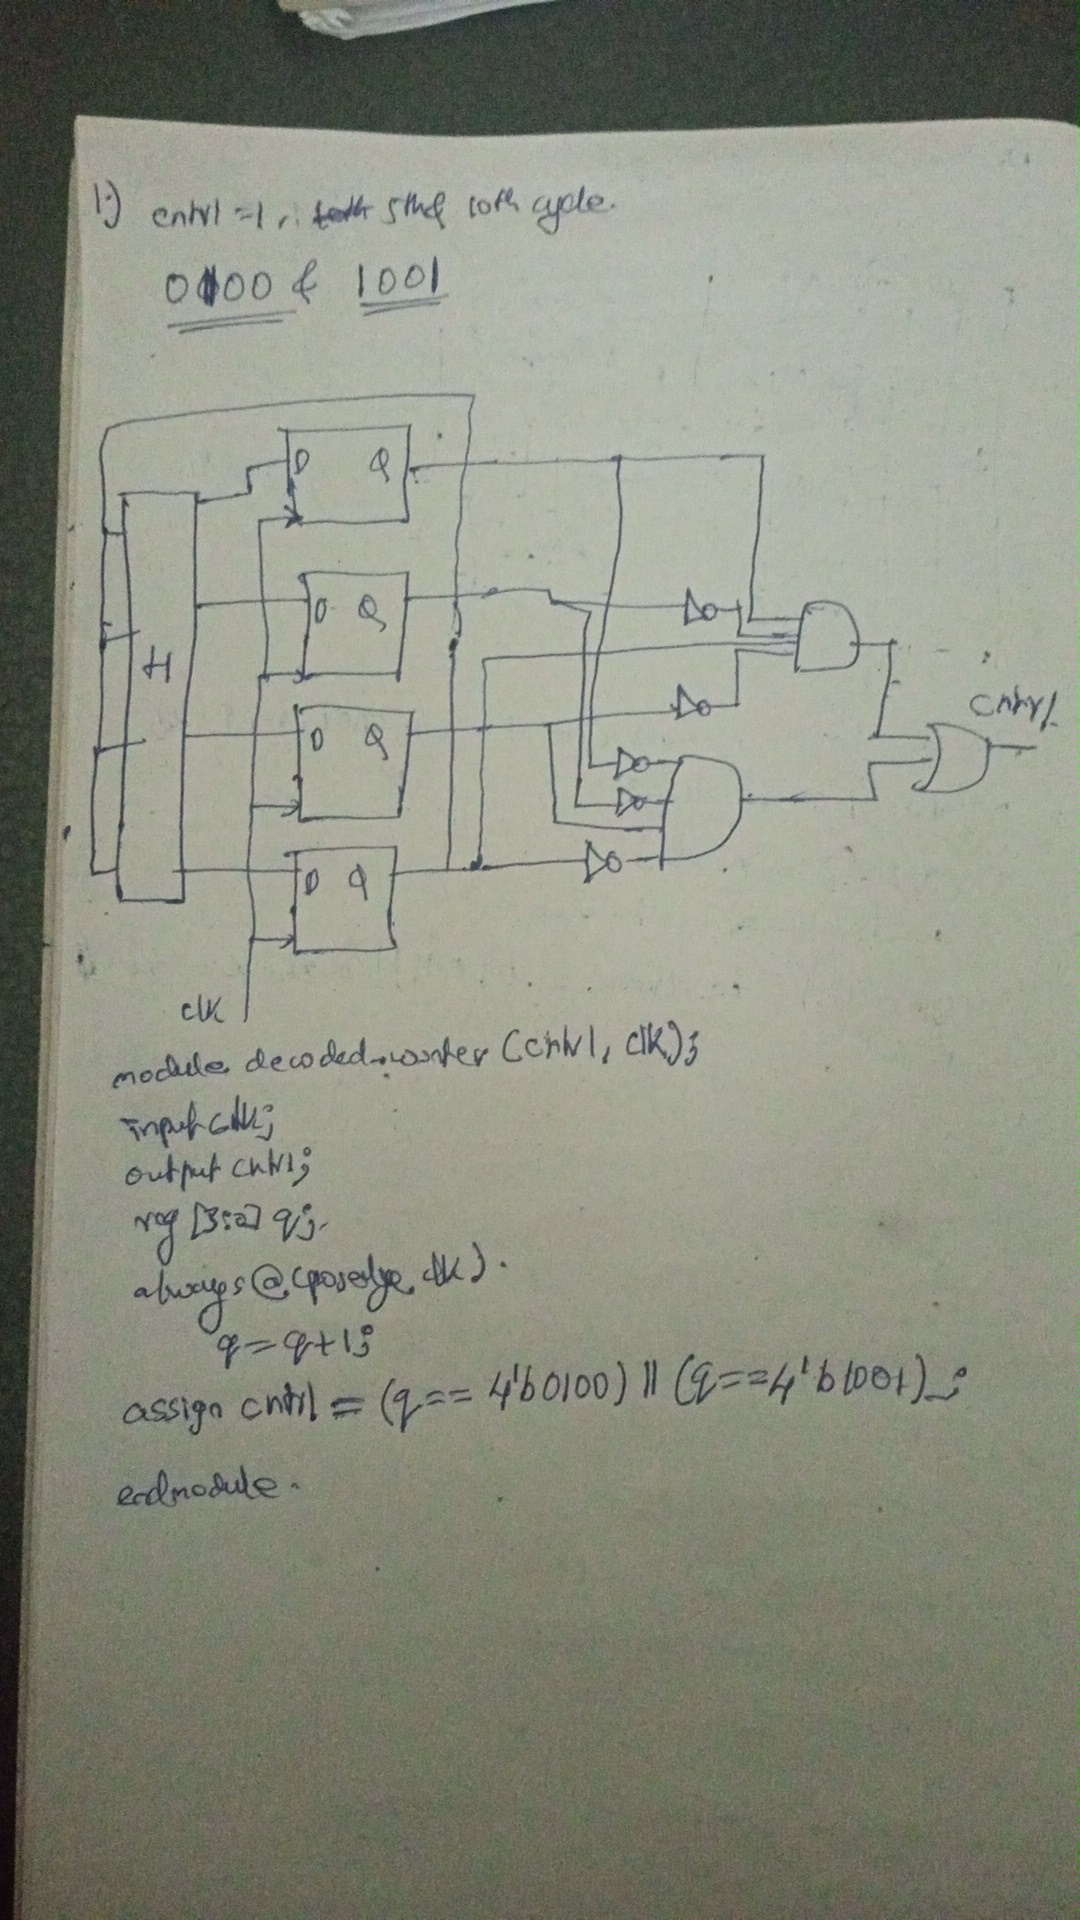 1.) cntrl =1, 5th & 10th cycle.
0100 & 1001
D Q
D Q
H
D Q
cntrl
D Q
clk
module decoded-counter (cntrl, clk);
input clk;
output cntrl;
reg [3:0] q;
always@(posedge clk).
q=q+1;
assign cntrl = (q== 4'b0100) || (q==4'b1001) ;
endmodule.